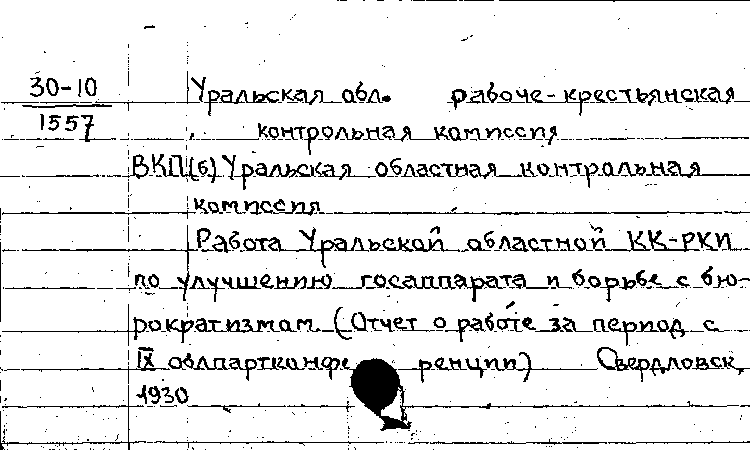 30-10
1557
Уральская обл. рабоче-крестьянская
контрольная комиссия
ВКП(б) Уральская областная контрольная
комиссия
Работа Уральской областной КК-РКИ
по улучшению госаппарата и борьбе с бю-
рократизмом. (Отчет о работе за период с
IX облпартконференции) Свердловск,
1930